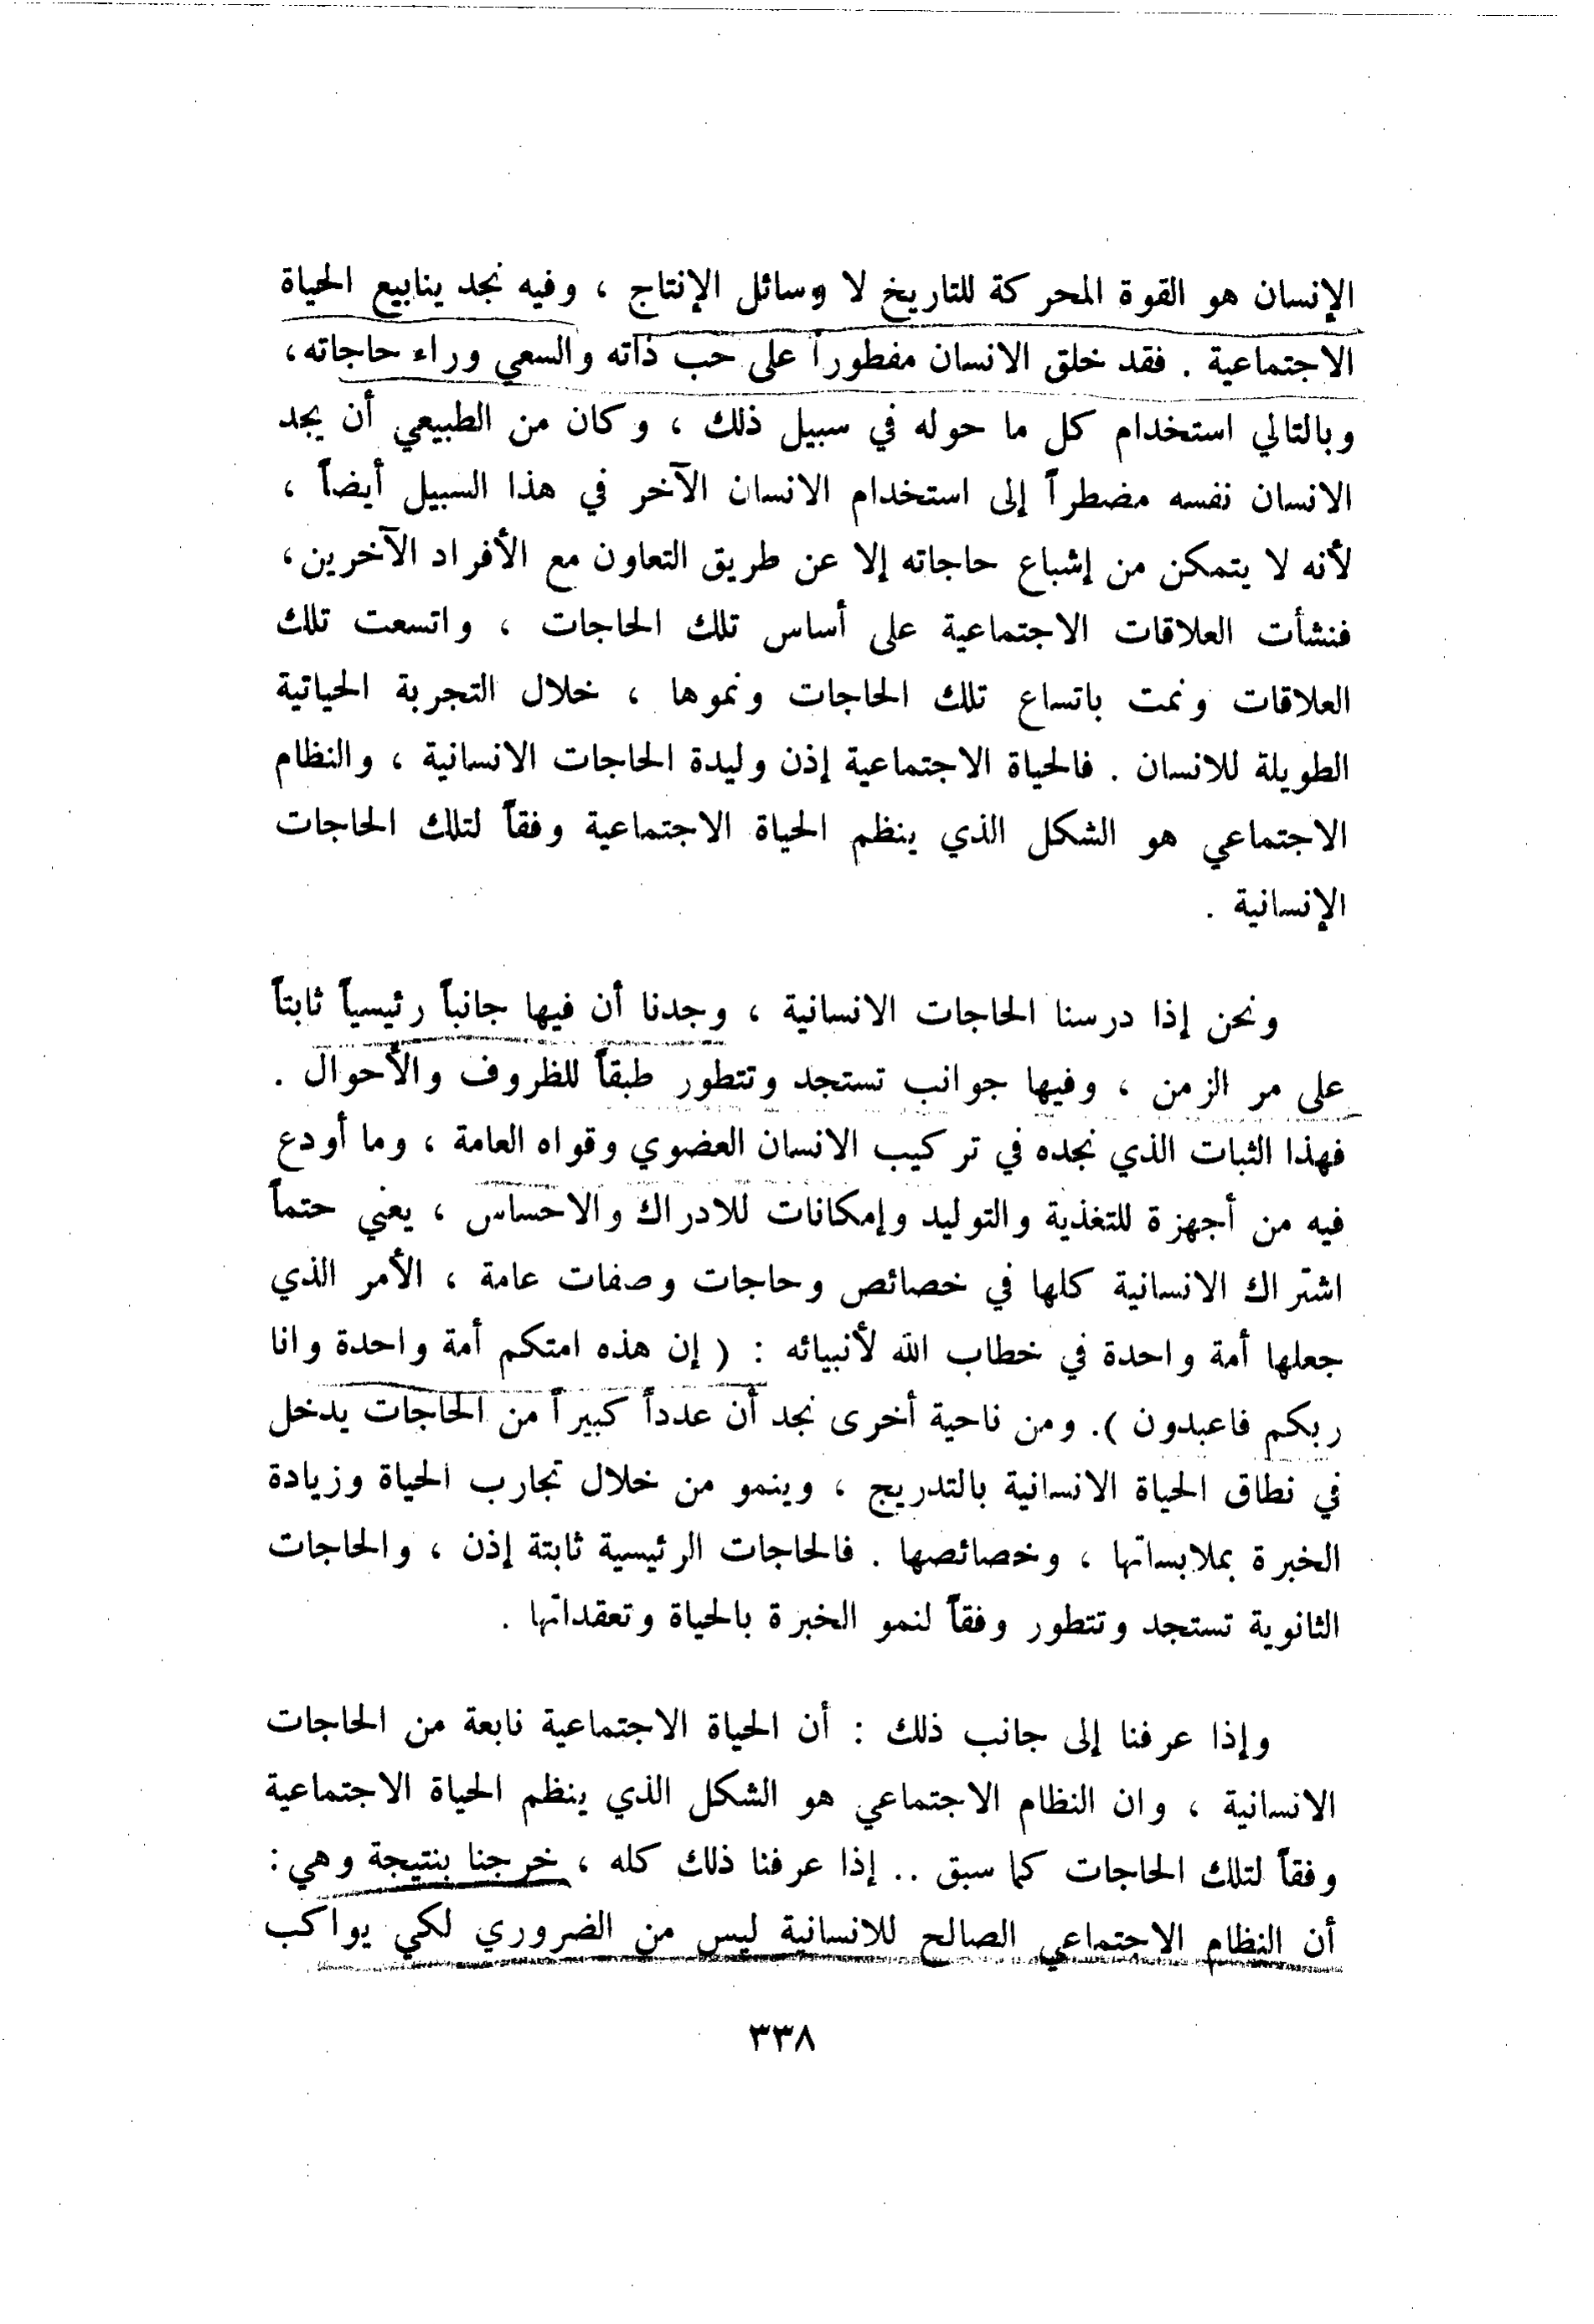 الإنسان هو القوة المحركة للتاريخ لا وسائل الإنتاج ، وفيه نجد ينابيع الحياة
الاجتماعية . فقد خلق الانسان مفطوراً على حب ذاته والسعي وراء حاجاته ،
وبالتالي استخدام كل ما حوله في سبيل ذلك ، وكان من الطبيعي أن يجد
الانسان نفسه مضطراً إلى استخدام الانسان الآخر في هذا السبيل أيضاً ،
لأنه لا يتمكن من إشباع حاجاته إلا عن طريق التعاون مع الأفراد الآخرين ،
فنشأت العلاقات الاجتماعية على أساس تلك الحاجات ، واتسعت تلك
العلاقات ونمت باتساع تلك الحاجات ونموها ، خلال التجربة الحياتية
الطويلة للانسان . فالحياة الاجتماعية إذن وليدة الحاجات الانسانية ، والنظام
الاجتماعي هو الشكل الذي ينظم الحياة الاجتماعية وفقاً لتلك الحاجات
الإنسانية .
ونحن إذا درسنا الحاجات الانسانية ، وجدنا أن فيها جانباً رئيسياً ثابتاً
على مر الزمن ، وفيها جوانب تستجد وتتطور طبقاً للظروف والأحوال .
فهذا الثبات الذي نجده في تركيب الانسان العضوي وقواه العامة ، وما أودع
فيه من أجهزة للتغذية والتوليد وإمكانات للادراك والاحساس ، يعني حتماً
اشتراك الانسانية كلها في خصائص وحاجات وصفات عامة ، الأمر الذي
جعلها أمة واحدة في خطاب الله لأنبيائه : ( إن هذه امتكم أمة واحدة وانا
ربكم فاعبدون ). ومن ناحية أخرى نجد أن عدداً كبيراً من الحاجات يدخل
في نطاق الحياة الانسانية بالتدريج ، وينمو من خلال تجارب الحياة وزيادة
الخبرة بملابساتها ، وخصائصها . فالحاجات الرئيسية ثابتة إذن ، والحاجات
الثانوية تستجد وتتطور وفقاً لنمو الخبرة بالحياة وتعقداتها .
وإذا عرفنا إلى جانب ذلك : أن الحياة الاجتماعية نابعة من الحاجات
الانسانية ، وان النظام الاجتماعي هو الشكل الذي ينظم الحياة الاجتماعية
وفقاً لتلك الحاجات كما سبق .. إذا عرفنا ذلك كله ، خرجنا بنتيجة وهي :
أن النظام الاجتماعي الصالح للانسانية ليس من الضروري لكي يواكب
٣٣٨